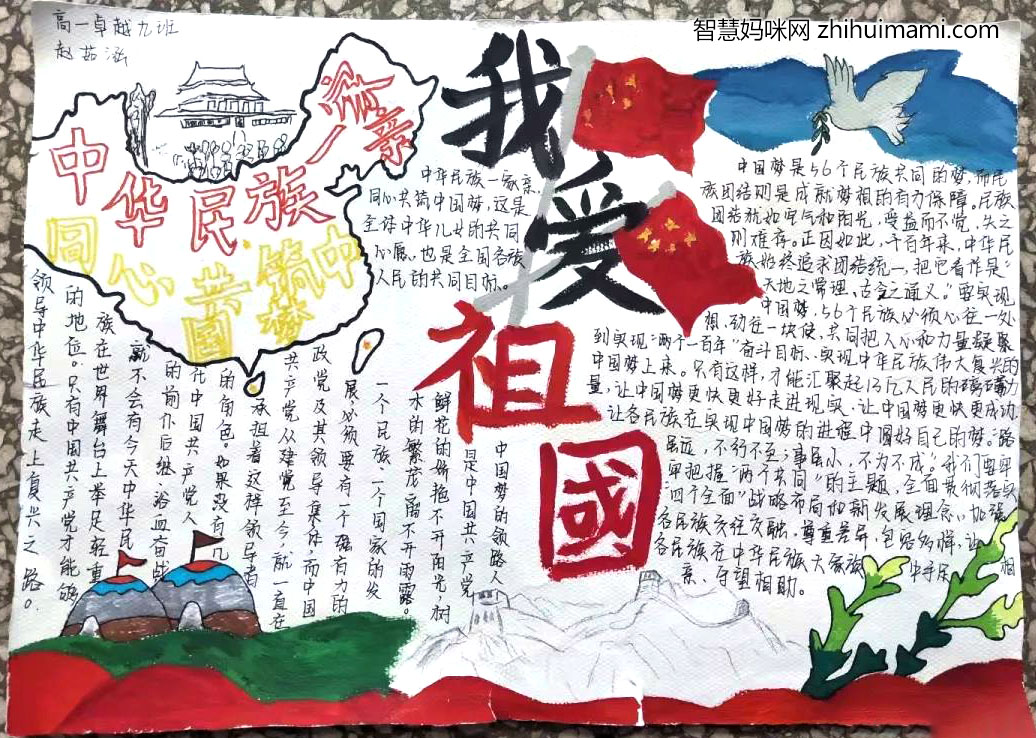 智慧妈咪网 zhihuimami.com
高一卓越九班
赵茹涵
中华民族一家亲
同心共筑中国梦
我爱祖國
中华民族一家亲,
同心共筑中国梦,这是
全体中华儿女的共同
心愿,也是全国各族
人民的共同目标。
中国梦是56个民族共同的梦,而民
族团结则是成就梦想的有力保障。民族
团结就如空气和阳光,受益而不觉,失之
则难存。正因如此,千百年来,中华民
族始终追求团结统一,把它看作是“
天地之常理,古今之通义。”要实现
中国梦,56个民族必须心往一处
想,劲往一块使,共同把人心和力量凝聚
到实现“两个一百年”奋斗目标、实现中华民族伟大复兴的
中国梦上来。只有这样,才能汇聚起13亿人民的磅礴力
量,让中国梦更快更好走进现实,让中国梦更快更成功
让各民族在实现中国梦的进程中圆好自己的梦。“路
虽远,不行不至;事虽小,不为不成。”我们要牢
牢把握“两个共同”的主题,全面贯彻落实
“四个全面”战略布局和新发展理念,加强
各民族交往交融,尊重差异,包容多样,让
各民族在中华民族大家庭中手足相
亲、守望相助。
中国梦的领路人
是中国共产党
鲜花的娇艳离不开阳光,树
木的繁茂离不开雨露。
一个民族、一个国家的发
展必须要有一个强有力的
政党及其领导集体,而中国
共产党从建党至今,就一直在
承担着这样领导者
的角色。如果没有几
代中国共产党人
的前仆后继、浴血奋战
就不会有今天中华民
族在世界舞台上举足轻重
的地位。只有中国共产党才能够
领导中华民族走上复兴之路。